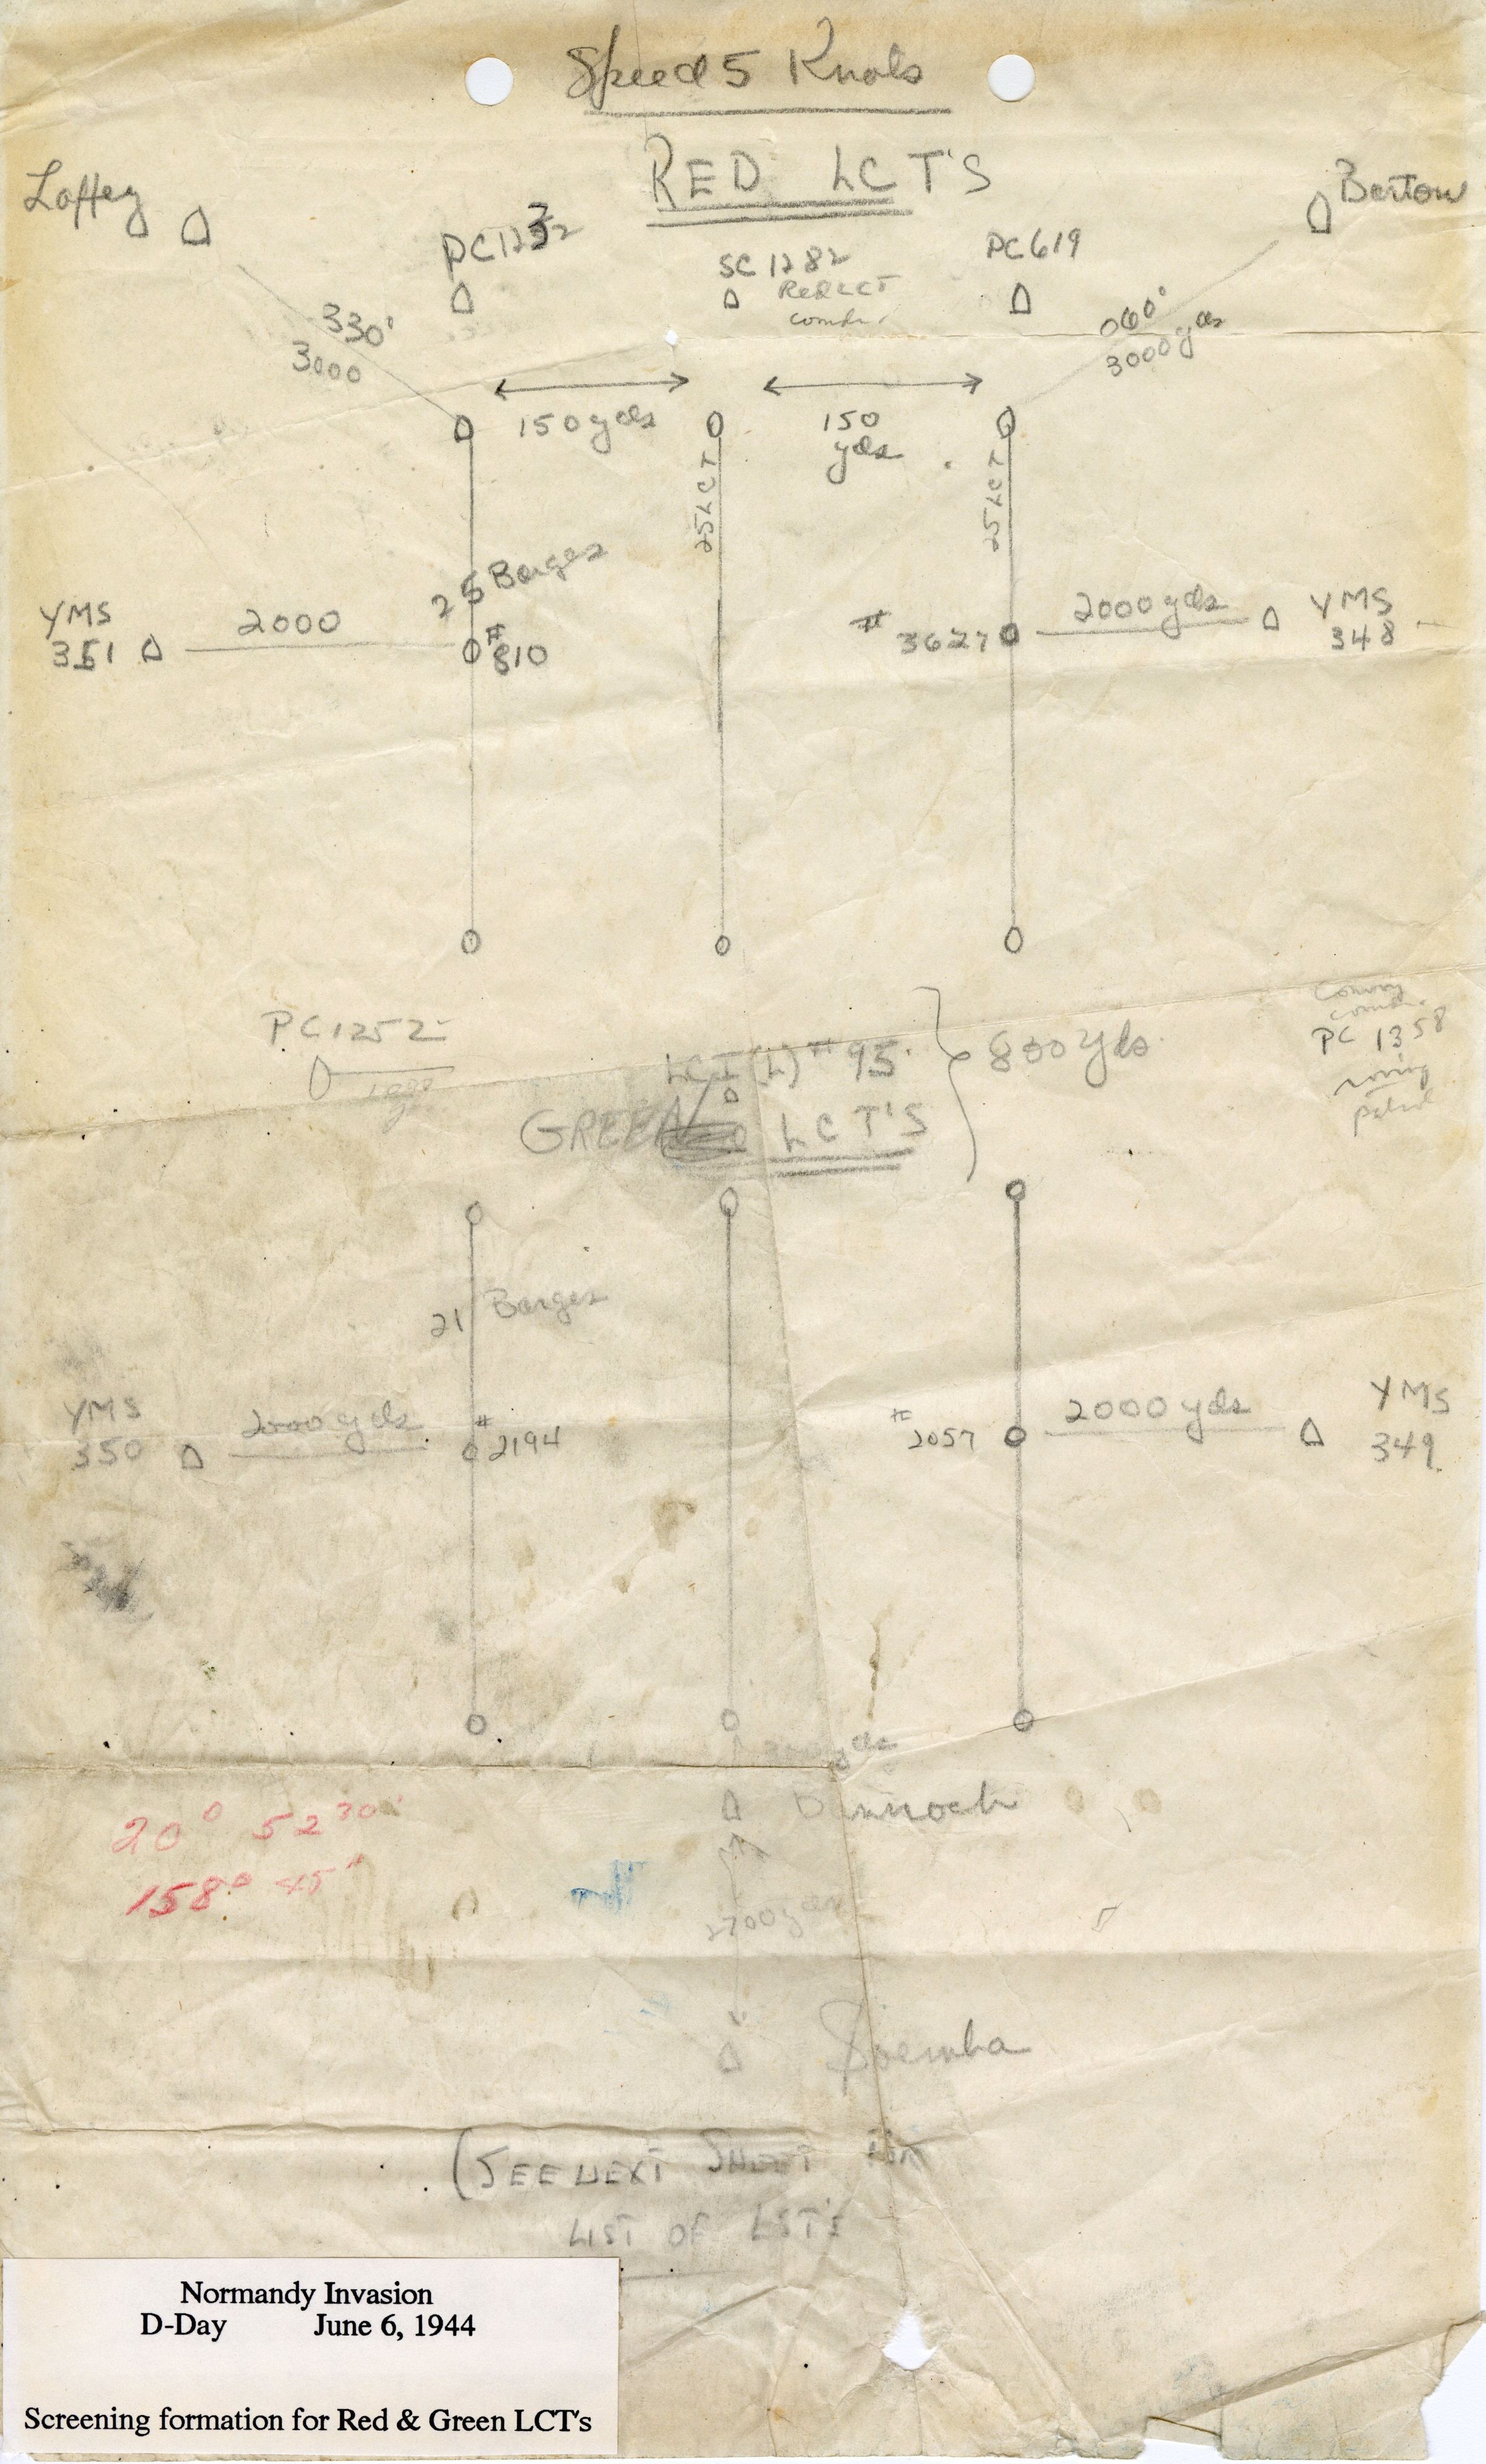 Speed 5 Knots
RED LCT'S
Laffey
Barton
PC 1232
SC 1282
Red LCT
comdr.
PC 619
330°
3000
060°
3000 yds
150 yds
150
yds
25 LCT
25 LCT
25 Barges
YMS
351
2000
#
810
#
3627
2000 yds
YMS
348
PC 1252
LCI(L) # 95
800 yds
Convoy
comdr.
PC 1358
roving
patrol
GREEN LCT'S
21 Barges
YMS
350
2000 yds
#
2194
#
2057
2000 yds
YMS
349
yds
20° 52 30'
158° 45'
2700 yds
Soemba
(SEE NEXT SHEET FOR
LIST OF LCT'S
Normandy Invasion
D-Day June 6, 1944
Screening formation for Red & Green LCT's